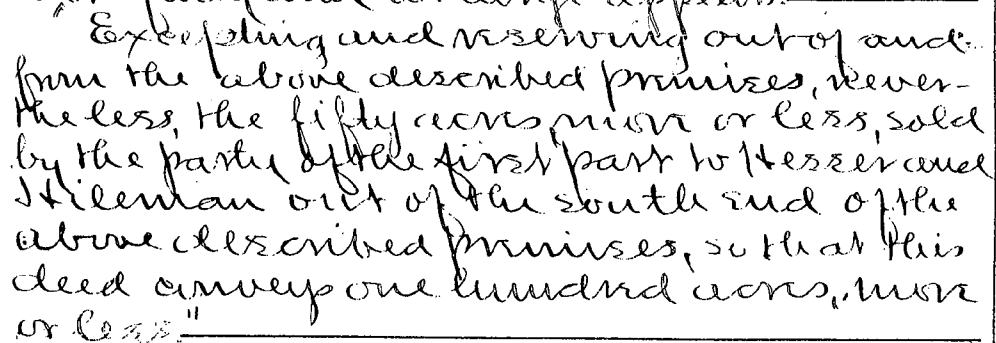 "Excepting and reserving out of and
from the above described premises, never-
theless, the fifty acres, more or less, sold
by the party of the first part to Hesser and
Hileman out of the south end of the
above described premises, so that this
deed conveys one hundred acres, more
or less."